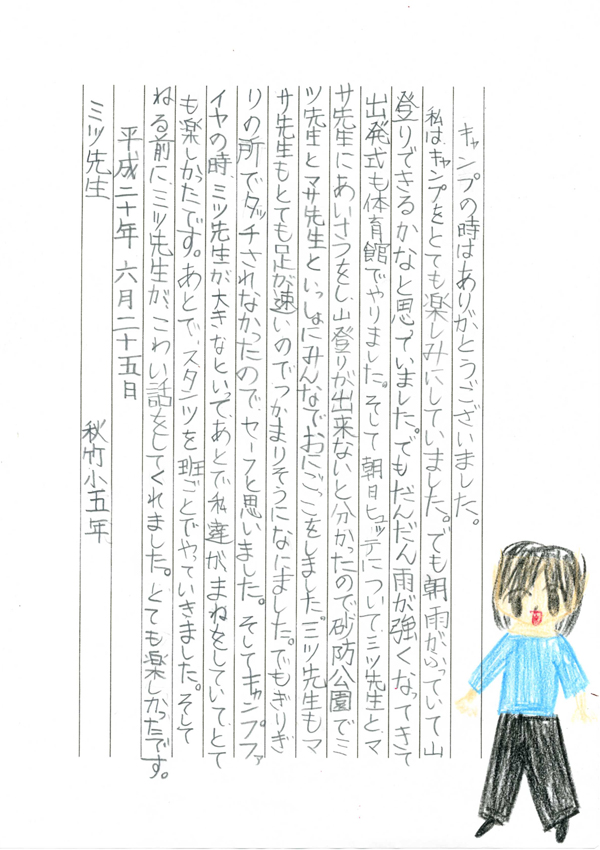 キャンプの時はありがとうございました。
私はキャンプをとても楽しみにしていました。でも朝雨がふっていて山
登りできるかなと思っていました。でもだんだん雨が強くなってきて
出発式も体育館でやりました。そして朝日ヒュッテについてミツ先生とマ
サ先生にあいさつをし、山登りが出来ないと分かったので砂防公園でミ
ツ先生とマサ先生といっしょにみんなでおにごっこをしました。ミツ先生もマ
サ先生もとても足が速いのでつかまりそうになにました。でもぎりぎ
りの所でタッチされなかったので、セーフと思いました。そしてキャンプファ
イヤの時、ミツ先生が大きなといであとで私達がまねをしていてとて
も楽しかったです。あとで、スタンツを班ごとでやていきました。そして
ねる前にミツ先生が、こわい話をしてくれました。とても楽しかったです。
平成二十年 六月二十五日
ミツ先生 秋竹小五年